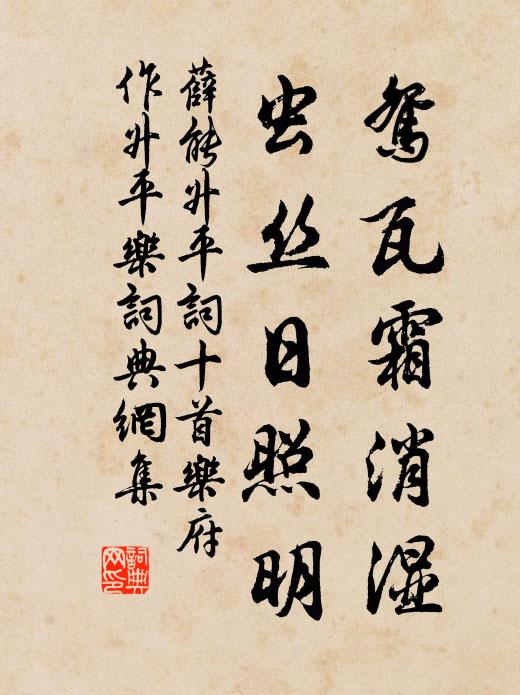 鸳瓦霜消湿
虫丝日照明
薛能升平詞十首樂府
作升平樂詞典網集
詞典网印